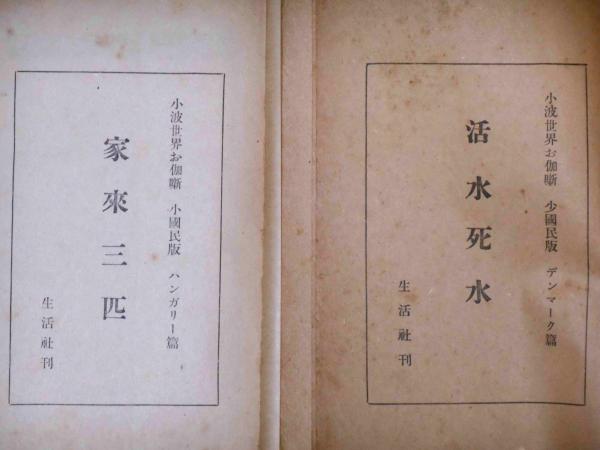 小波世界お伽噺 少國民版 デンマーク篇
活水死水
生活社刊
小波世界お伽噺 小國民版 ハンガリー篇
家來三匹
生活社刊